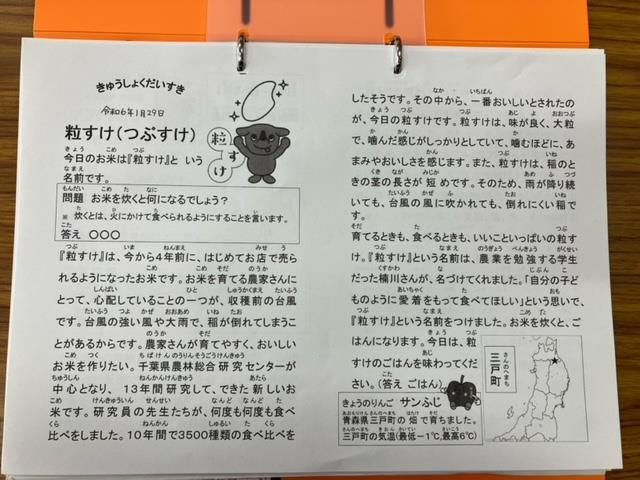 きゅうしょくだいすき
令和6年1月29日
粒すけ(つぶすけ)
今日のお米は『粒すけ』と いう
名前です。
粒すけ
問題 お米を炊くと何になるでしょう?
※ 炊くとは、火にかけて食べられるようにすることを言います。
答え ○○○
『粒すけ』は、今から4年前に、はじめてお店で売ら
れるようになったお米です。お米を育てる農家さんに
とって、心配していることの一つが、収穫前の台風
です。台風の強い風や大雨で、稲が倒れてしまうこ
とがあるからです。農家さんが育てやすく、おいしい
お米を作りたい。千葉県農林総合研究センターが
中心となり、13年間研究して、できた新しいお
米です。研究員の先生たちが、何度も何度も食べ
比べをしました。10年間で3500種類の食べ比べを
したそうです。その中から、一番おいしいとされたの
が、今日の粒すけです。粒すけは、味が良く、大粒
で、噛んだ感じがしっかりとしていて、噛むほどに、あ
まみやおいしさを感じます。また、粒すけは、稲のと
きの茎の長さが短めです。そのため、雨が降り続
いても、台風の風に吹かれても、倒れにくい稲で
す。
育てるときも、食べるときも、いいこといっぱいの粒す
け。『粒すけ』という名前は、農業を勉強する学生
だった楠川さんが、名づけてくれました。「自分の子ど
ものように愛着をもって食べてほしい」という思いで、
『粒すけ』という名前をつけました。お米を炊くと、ご
はんになります。今日は、粒
すけのごはんを味わってくだ
さい。(答え ごはん)
きょうのりんご サンふじ
青森県三戸町の畑で育ちました。
三戸町の気温(最低-1℃,最高6℃)
三戸町
さんのへまち